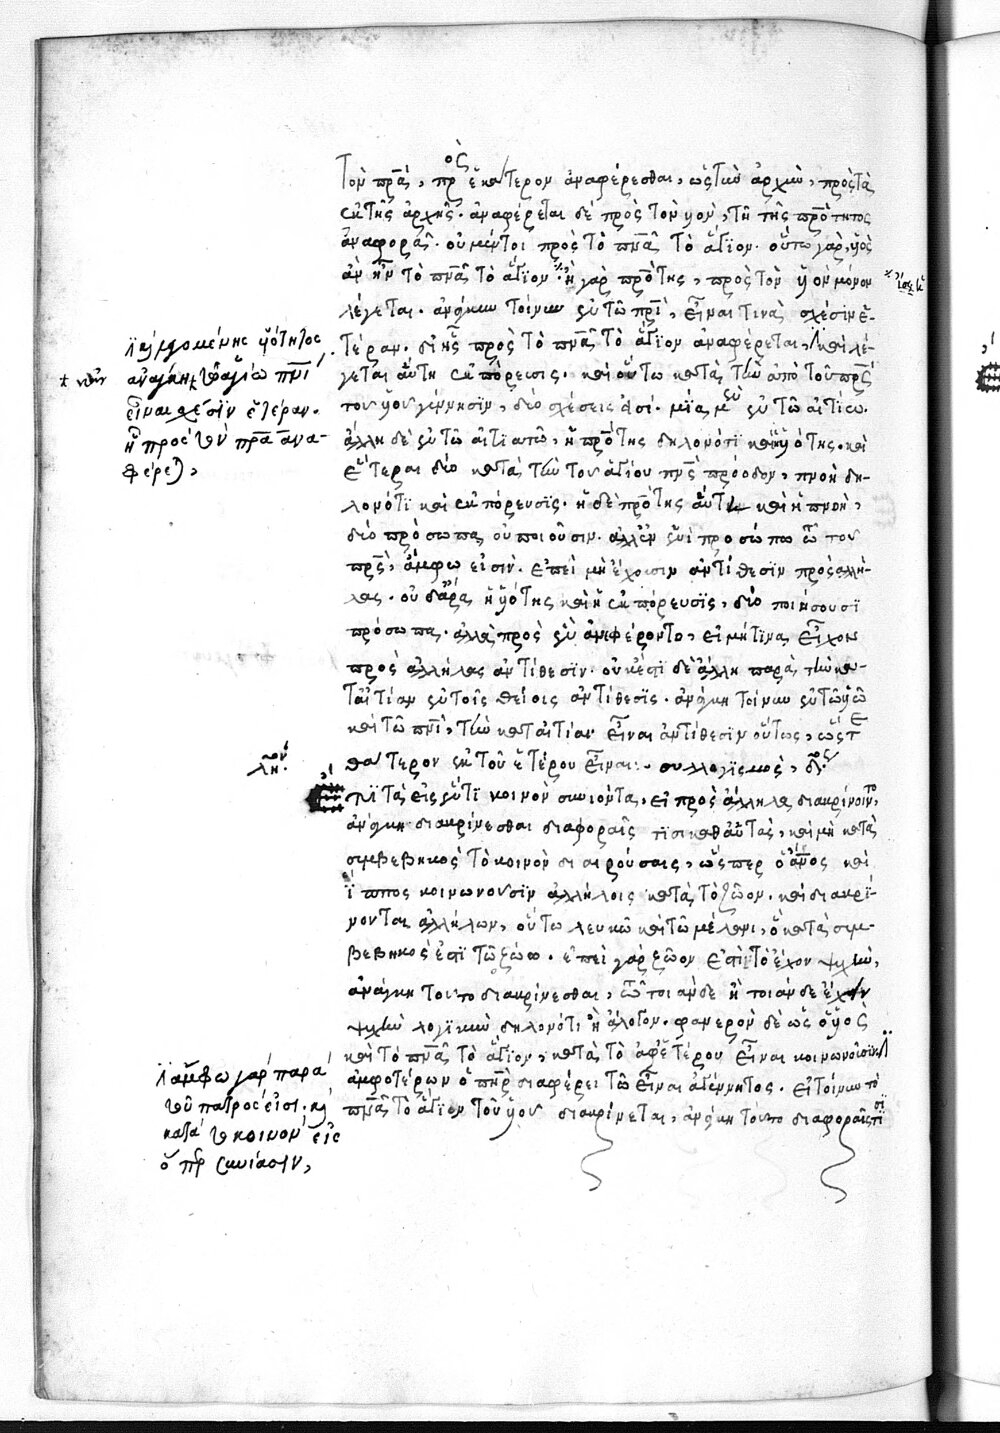 ὸς
τὸν πρ̅α̅, πρ ἑκάτερον ἀναφέρεσθαι, ὡς τὴν ἀρχὴν, πρὸς τὰ
ἐκ τῆς ἀρχῆς. ἀναφέρεται δὲ πρὸς τὸν υἱὸν, τῆ τῆς πρ̅ότητος
ἀναφορᾶ. οὐ μέντοι πρὸς τὸ πν̅α̅ τὸ ἅγϊον. οὕτω γὰρ, υἱὸς
ἂν ἦν τὸ πν̅α̅ τὸ ἅγϊον. ἡ γὰρ πρ̅ότης, πρὸς τὸν υἱὸν μόνον
λέγεται. ἀνάγκη τοίνυν ἐν τῶ πρ̅ὶ, εἶναι τινὰ σχέσϊν ἑ-
τέραν. δι' ἧς πρὸς τὸ πν̅α̅ τὸ ἅγϊον ἀναφέρεται, καὶ λέ-
γεται αὕτη ἐκπόρευσις. καὶ οὕτω κατὰ τὴν ἀπὸ τοῦ πρ̅ς̅
του υἱου γέννησϊν, δύο σχέσεις εἰσί. μϊα μὲν ἐν τῶ αἰτίω.
ἄλλη δὲ ἐν τῶ αἰτϊατῶ, ἡ πρ̅ότης δηλονότϊ καὶ ἡ υἱότης. καὶ
ἕτεραι δύο κατὰ τὴν του ἁγίου πν̅ς̅ πρόοδον, πνοὴ δη-
λονότϊ καὶ ἐκπόρευσϊς. ἡ δὲ πρ̅ότης αὕτη καὶ ἡ πνοὴ,
δύο πρόσωπα οὐ ποιοῦσιν. ἀλλ' ἐν ἑνὶ προσώπω τῶ του
πρ̅ς̅, ἄμφω εἰσὶν. ἐπεὶ μὴ ἔχουσιν ἀντίθεσϊν πρὸς ἀλλή-
λας. οὐδ' ἄρα ἡ υἱότης καὶ ἡ ἐκπόρευσϊς, δύο ποιήσουσϊ
πρόσωπα. ἀλλὰ πρὸς ἓν ἀνεφέροντο, εἰ μήτϊνα εἶχον
πρὸς ἀλλήλας ἀντίθεσϊν. οὐκ ἔστϊ δὲ ἄλλη παρὰ τὴν κα-
τ' αἰτίαν ἐν τοῖς θείοις ἀντίθεσϊς. ἀνάγκη τοίνυν ἐν τῶ υἱῶ
καὶ τῶ πν̅ὶ, τὴν κατ' αἰτίαν εἶναι ἀντίθεσϊν οὕτως, ὡς
θάτερον ἐκ τοῦ ἑτέρου εἶναι: συλλογϊσμὸς,
τὰ εἰς ἕν τϊ κοινὸν συνιόντα, εἰ πρὸς ἄλληλα διακρίνοιντο,
ἀνάγκη διακρίνεσθαι διαφοραῖς τϊσι καθ' αὑτὰς, καὶ μὴ κατὰ
συμβεβηκὸς τὸ κοινὸν διαιρούσαις, ὥσπερ ὁ ἄν̅ος καὶ
ἵππος κοινωνουσϊν ἀλλήλοις κατὰ τὸ ζῶον. καὶ διακρί-
νονται ἀλλήλων, οὔτω λευκῶ καὶ τῶ μέλανι, ὃ κατὰ συμ-
βεβηκός ἐστϊ τῶ ζώω. ἐπεὶ γὰρ ζῶον ἐστὶ τὸ ἔχον ψυχὴν,
ἀνάγκη τουτο διακρίνεσθαι, τῶ τοιάνδε ἢ τοιάνδε ἔχειν
ψυχὴν λογϊκὴν δηλονότι ἢ ἄλογον. φανερὸν δὲ ὡς ὁ υἱὸς
καὶ τὸ πν̅α̅ τὸ ἅγϊον, κατὰ τὸ ἀφ' ἑτέρου εἶναι κοινωνοῦσιν
ἀμφοτέρων ὁ πη̅ρ διαφέρει τῶ εἶναι ἀγέννητος. εἰ τοίνυν τὸ
πν̅α̅ τὸ ἅγϊον τοῦ υἱου διακρίνεται, ἀνάγκη τουτο διαφοραῖς τϊσι
λεγομένης υἱότητος.
ἀνάγκη τῶ ἁγίω πν̅ϊ
εἶναι σχέσϊν ἑτέραν.
ἣ πρὸς τὸν πρ̅α̅ ἀνα-
φέρε,
ἄμφω γὰρ παρὰ
τοῦ πατρὸς εἰσι. κὶ
κατὰ τὸ κοινὸν εἰς
ὁ πη̅ρ συνίασιν,